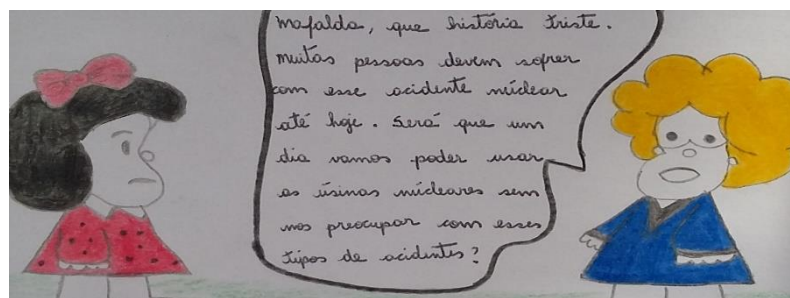 Mafalda, que história triste.
Muitas pessoas devem sofrer
com esse acidente núclear
até hoje. Será que um
dia vamos poder usar
as úsinas núcleares sem
nos preocupar com esses
tipos de acidentes?